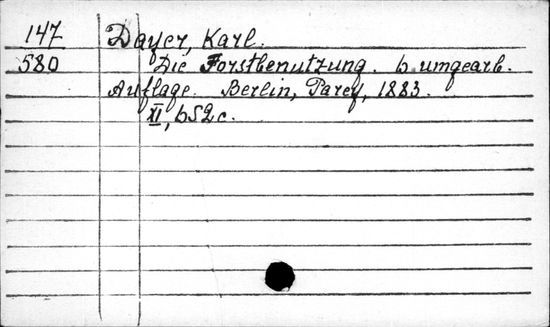 147 Dayer, Karl.
580 Die Forstbenutzung. 6 umgearb.
Auflage. Berlin, Parey, 1883.
XI, 652 c.